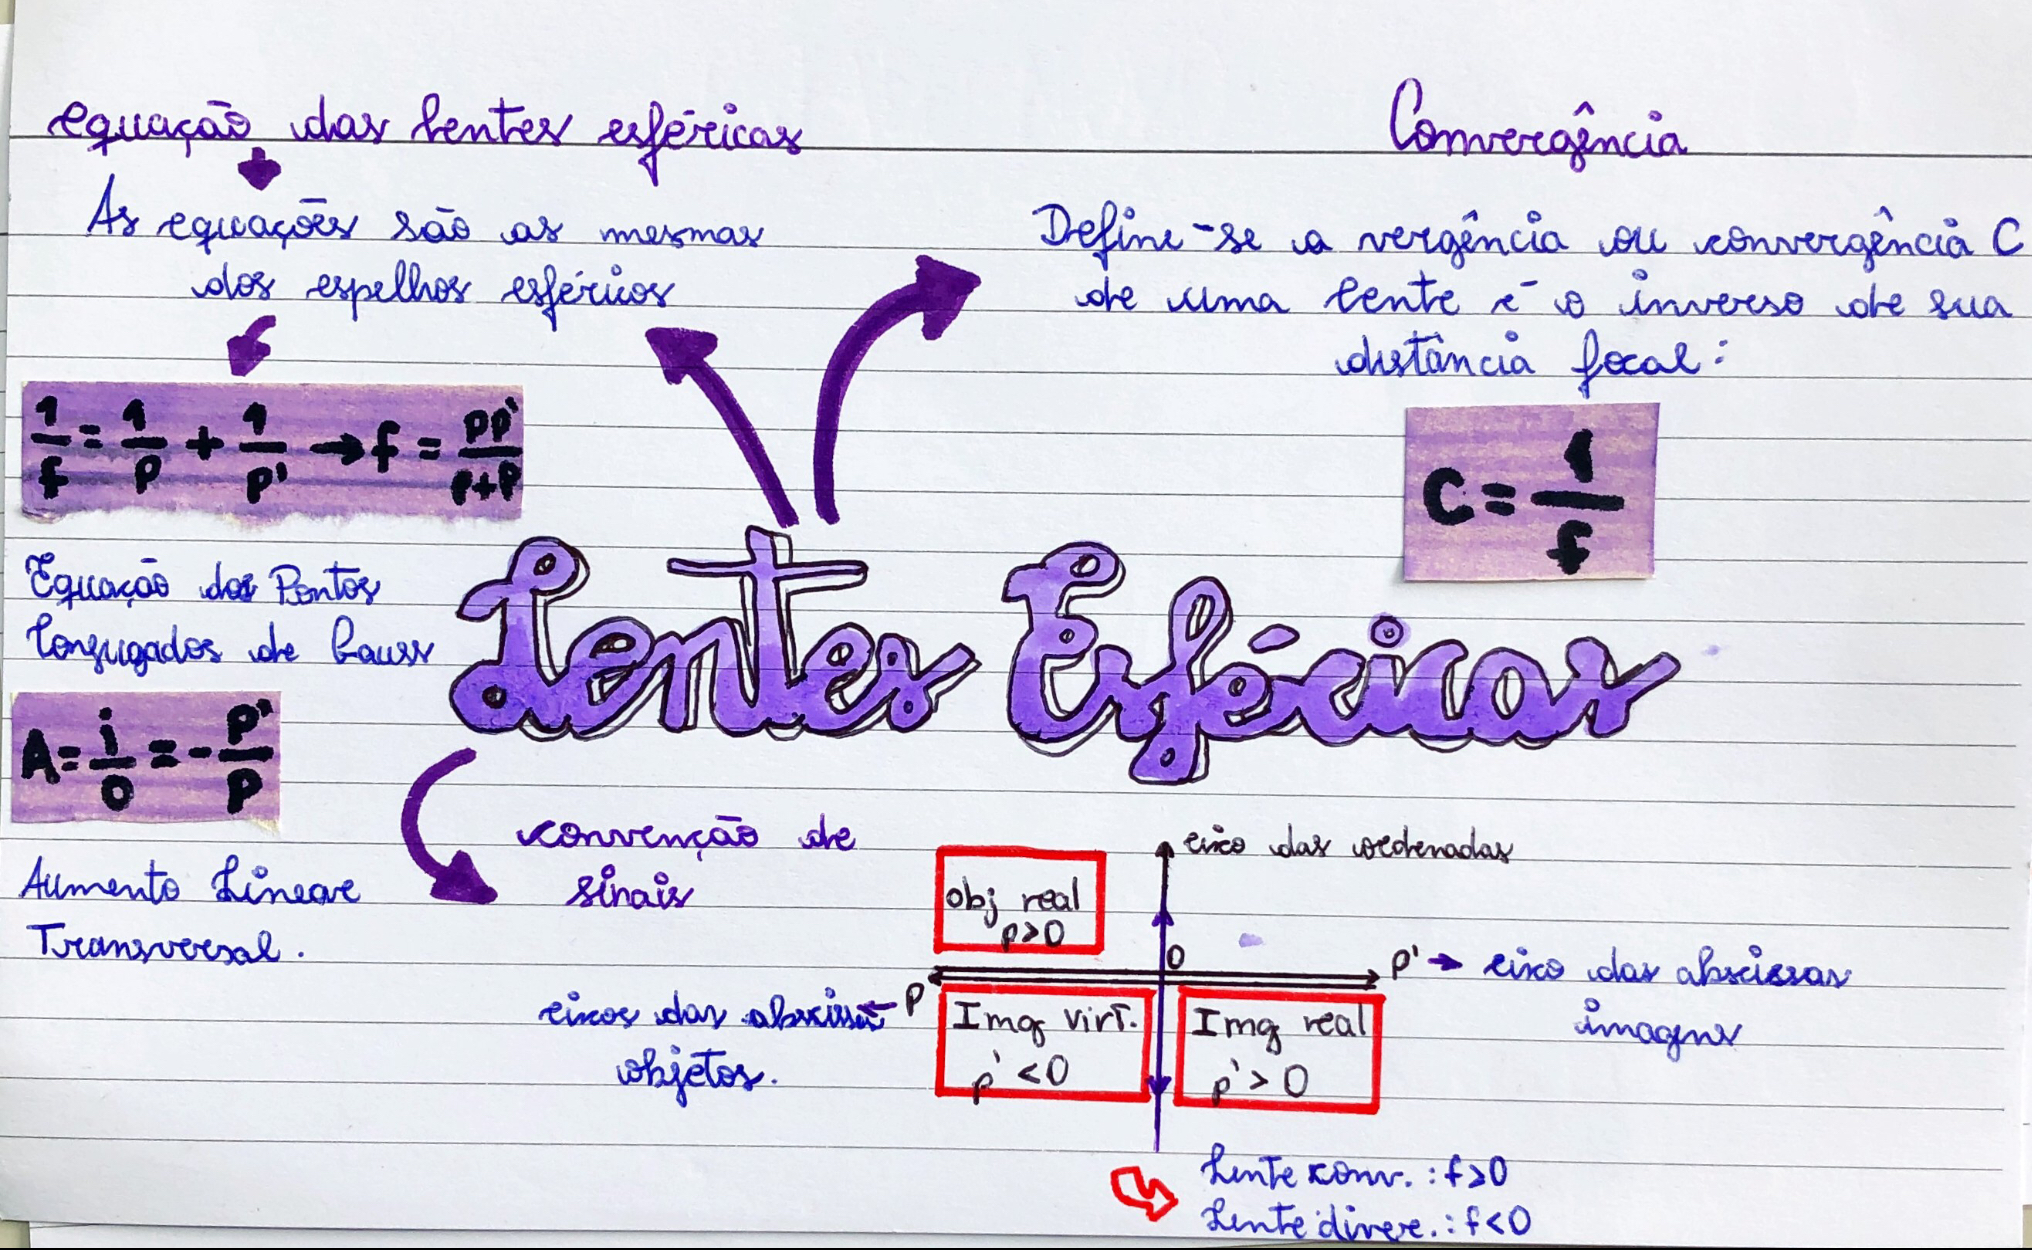 equação das lentes esféricas
As equações são as mesmas
dos espelhos esféricos
1/f = 1/p + 1/p' → f = pp'/p+p'
Equação dos Pontos
Conjugados de Gauss
A = i/o = - p'/p
Aumento Linear
Transversal.
Convergência
Define-se a vergência ou convergência C
de uma lente é o inverso de sua
distância focal:
C = 1/f
Lentes Esféricas
convenção de
sinais
eixo das ordenadas
obj real
p>0
0
p' → eixo das abscissas
imagens
eixos das abscissa ← p
objetos.
Img virt.
p' <0
Img real
p' > 0
Lente conv. : f>0
Lente diver. : f<0